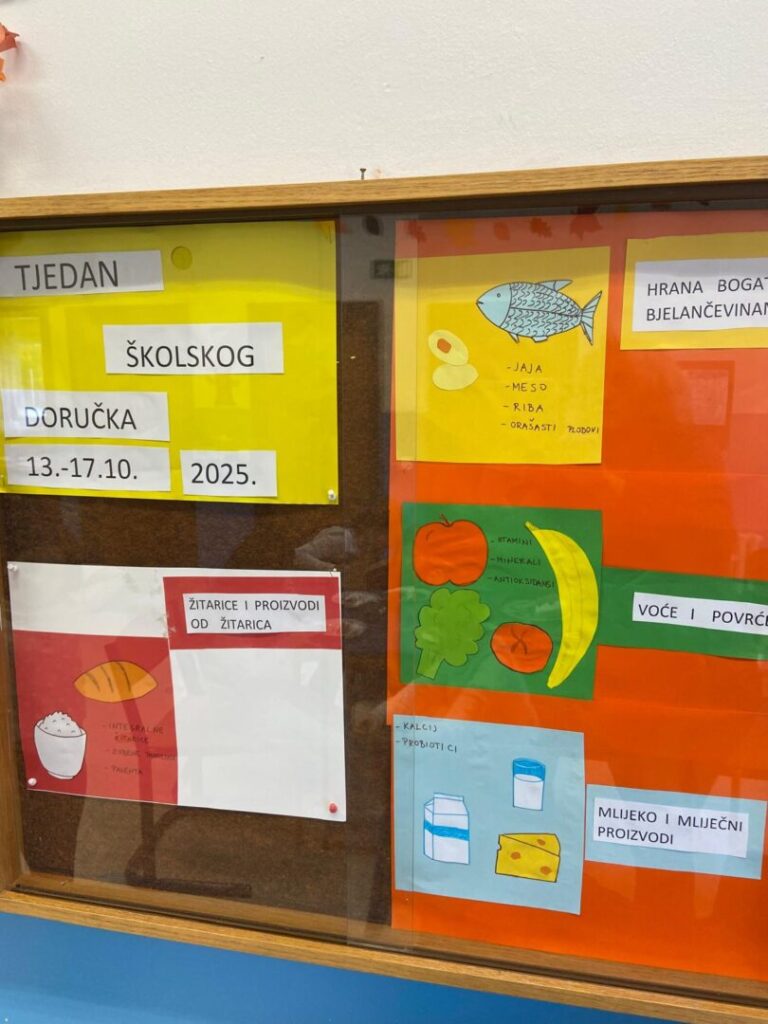 TJEDAN
ŠKOLSKOG
DORUČKA
13.-17.10. 2025.
ŽITARICE I PROIZVODI
OD ŽITARICA
- INTEGRALNE
ŽITARICE
- ZOBENE
- PALENTA
- JAJA
- MESO
- RIBA
- ORAŠASTI PLODOVI
HRANA BOGAT
BJELANČEVINAM
- VITAMINI
- MINERALI
- ANTIOKSIDANSI
VOĆE I POVRĆE
- KALCIJ
- PROBIOTICI
MLIJEKO I MLIJEČNI
PROIZVODI